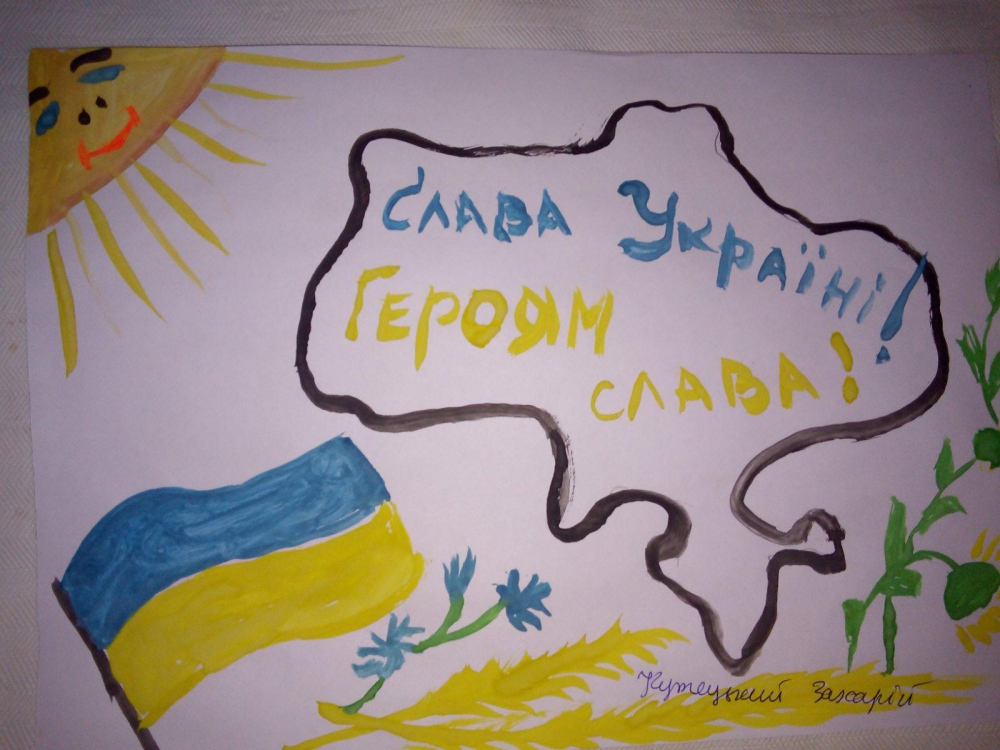 СЛАВА Україні!
ГЕРОЯМ
СЛАВА!
Захарій